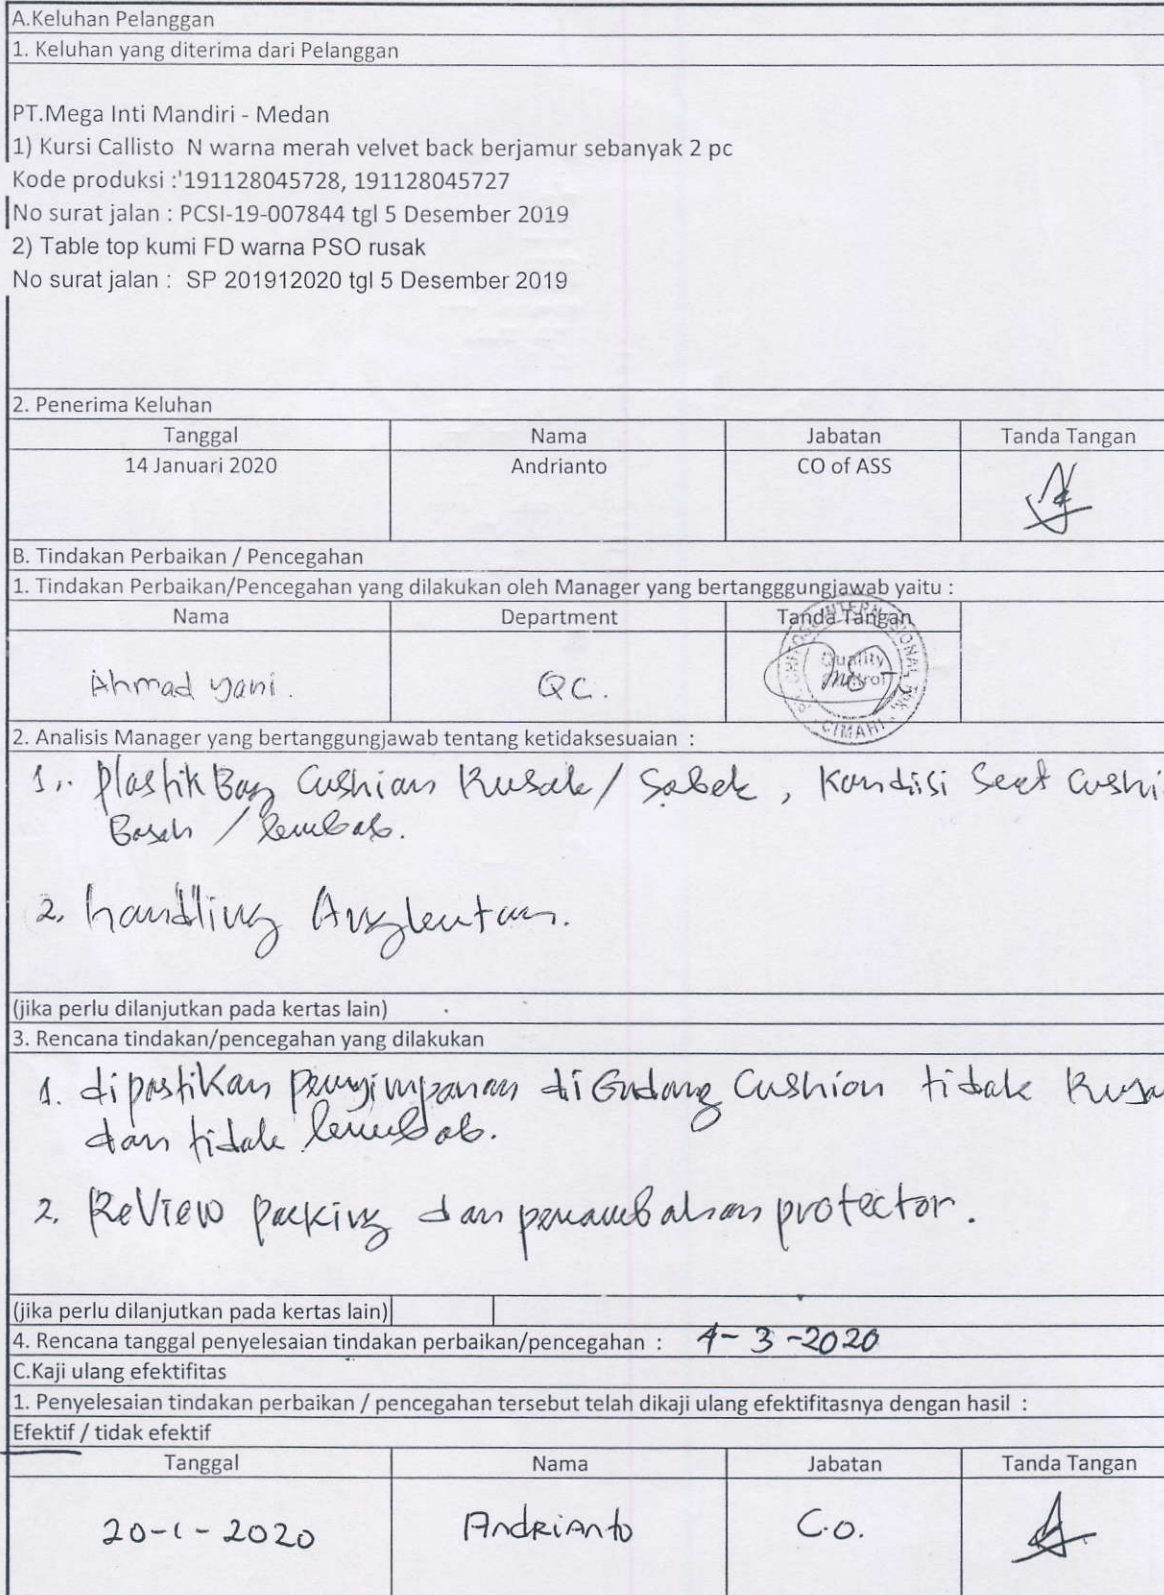 A.Keluhan Pelanggan
1. Keluhan yang diterima dari Pelanggan
PT.Mega Inti Mandiri - Medan
1) Kursi Callisto N warna merah velvet back berjamur sebanyak 2 pc
Kode produksi :'191128045728, 191128045727
No surat jalan : PCSI-19-007844 tgl 5 Desember 2019
2) Table top kumi FD warna PSO rusak
No surat jalan : SP 201912020 tgl 5 Desember 2019
2. Penerima Keluhan
Tanggal Nama Jabatan Tanda Tangan
14 Januari 2020 Andrianto CO of ASS
B. Tindakan Perbaikan / Pencegahan
1. Tindakan Perbaikan/Pencegahan yang dilakukan oleh Manager yang bertangggungjawab yaitu :
Nama Department Tanda Tangan
Ahmad yani. QC.
Quality
Control
CIMAHI
2. Analisis Manager yang bertanggungjawab tentang ketidaksesuaian :
1. Plastik Bag Cushion Rusak / Sobek, Kondisi Seat Cushi
Basah / lembab.
2. handling Angkutan.
(jika perlu dilanjutkan pada kertas lain)
3. Rencana tindakan/pencegahan yang dilakukan
1. dipastikan penyimpanan di Gudang Cushion tidak Rusa
dan tidak lembab.
2. ReView packing dan penambahan protector.
(jika perlu dilanjutkan pada kertas lain)
4. Rencana tanggal penyelesaian tindakan perbaikan/pencegahan : 4-3-2020
C.Kaji ulang efektifitas
1. Penyelesaian tindakan perbaikan / pencegahan tersebut telah dikaji ulang efektifitasnya dengan hasil :
Efektif / tidak efektif
Tanggal Nama Jabatan Tanda Tangan
20-1-2020 Andrianto C.O.